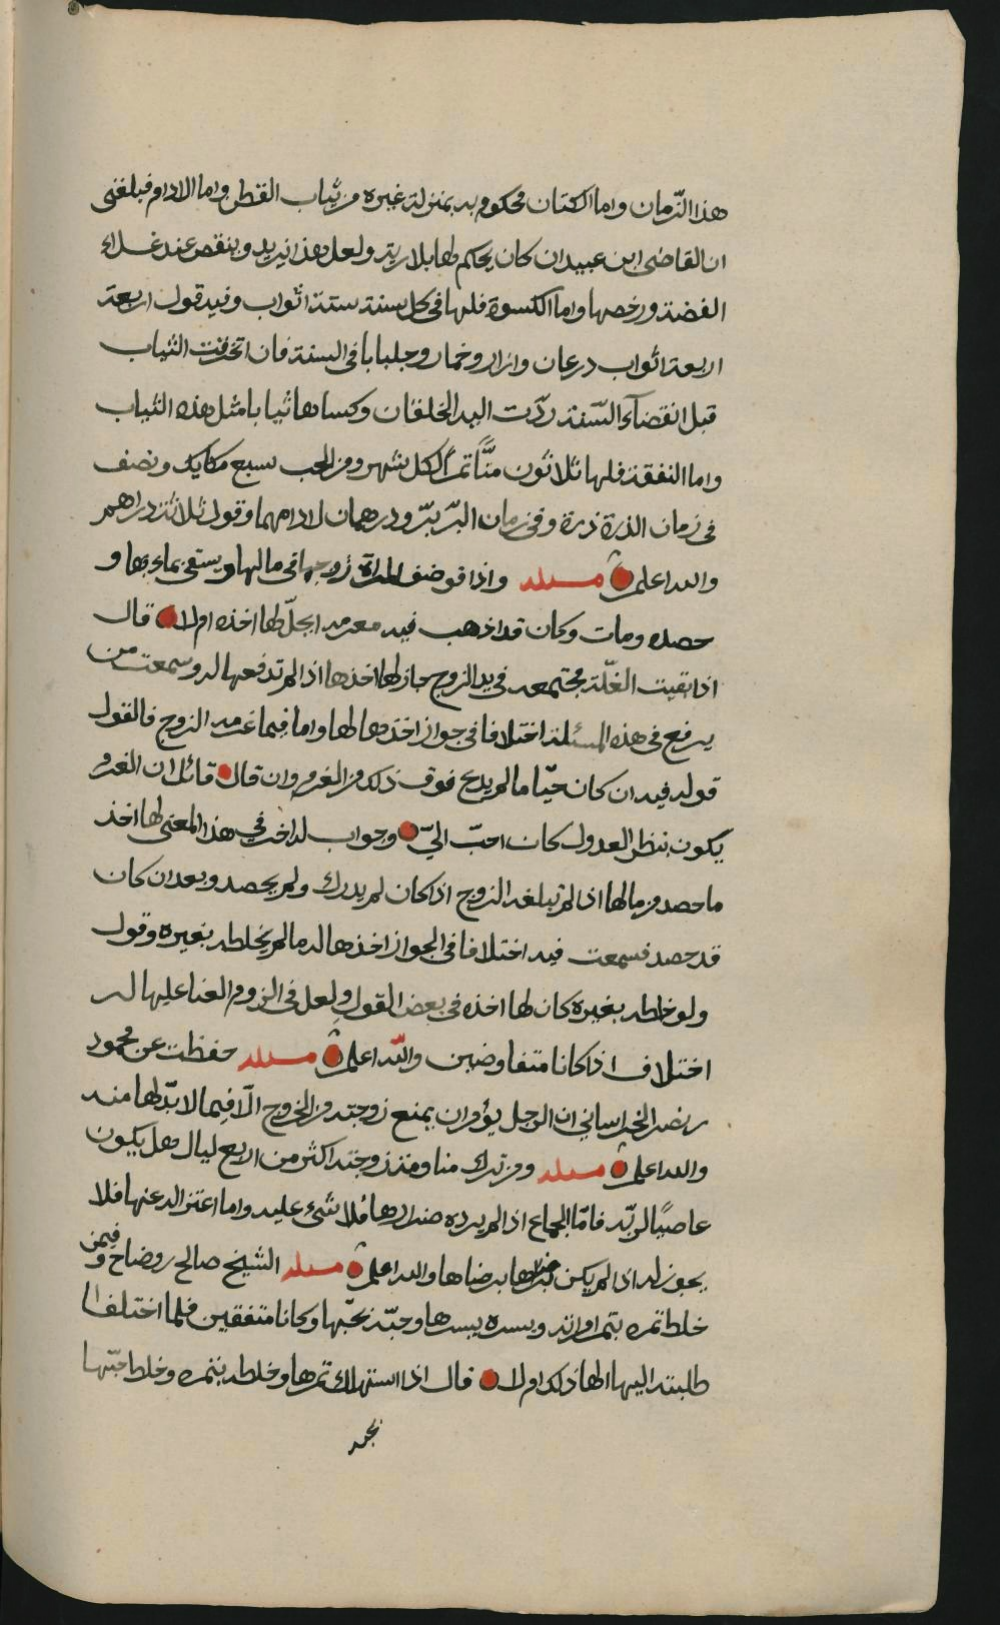 هذا الزّمان واما الكتان محكوم به بمنزلة غيره من ثياب القطن واما الادام فبلغني
ان القاضي ابن عبيدان كان يحكم لها بلارية ولعل هذا يزيد وينقص عند غلاء
الفضة ورخصها واما الكسوة فلها في كل سنة ستة اثواب وفيه قول اربعة
الاربعة اثواب درعان وازار وخمار وجلبابا في السنة فان انخرقت الثياب
قبل انقضآء السّنة ردّت اليه الخلقان وكساها ثيابا مثل هذه الثياب
واما النفقة فلها ثلاثون منًّا تمرا لكل شهر ومن الحب سبع مكايك ونصف
في زمان الذرة ذرة وفي زمان البرّ برّ ودرهمان لادامها وقول ثلاثة دراهم
والله اعلم مسئلة واذا فوضت المراة زوجها في مالها ويستقي بماءها و
حصده ومات وكان قد اذهب فيه مغرمه ايحلّ لها اخذه ام لا قال
اذا بقيت الغلّة مجتمعه في يد الزوج جاز لها اخذها اذا لم تدفعها له وسمعت من
يرفع في هذه المسئلة اختلافا في جواز اخذها لها واما فيما غرمه الزوج فالقول
قوله فيه ان كان حيّا ما لم يدع فوق ذلك من الغرم وان قال قائل ان الغرم
يكون بنظر العدول كان احبّ اليّ وجواب له اخر في هذا المعنى لها اخذ
ما حصد من مالها اذا لم تبلغه الزوج اذا كان لم يدرك ولم يحصد وبعد ان كان
قد حصد فسمعت فيه اختلافا في الجواز اخذها له ما لم يخلطه بغيره وقول
ولو خلطه بغيره كان لها اخذه في بعض القول ولعل في الزوم العنا عليها له
اختلاف اذا كانا متفاوضين والله اعلم مسئلة حفظت عن محمود
بن نصر الخراساني ان الرجل يؤمر ان يمنع زوجته من الخروج الّا فيما لا بدّ لها منه
والله اعلم مسئلة ومن ترك منامة زوجته اكثر من اربع ليال هل يكون
عاصيًا لربّه فامّا الجماع اذا لم يرده ضرارها فلا شئ عليه واما اعتزاله عنها فلا
يجوز له اذا لم يكن برضاها والله اعلم مسئلة الشيخ صالح بن وضاح وفيمن
خلط تمره بتمر امراته وبسره ببسرها وحبّه بحبّها وكانا متفقين فلما اختلفا
طلبته اليها الها ذلك ام لا قال اذا استهلك تمرها وخلطه بتمره وخلط حبّها
بحبه